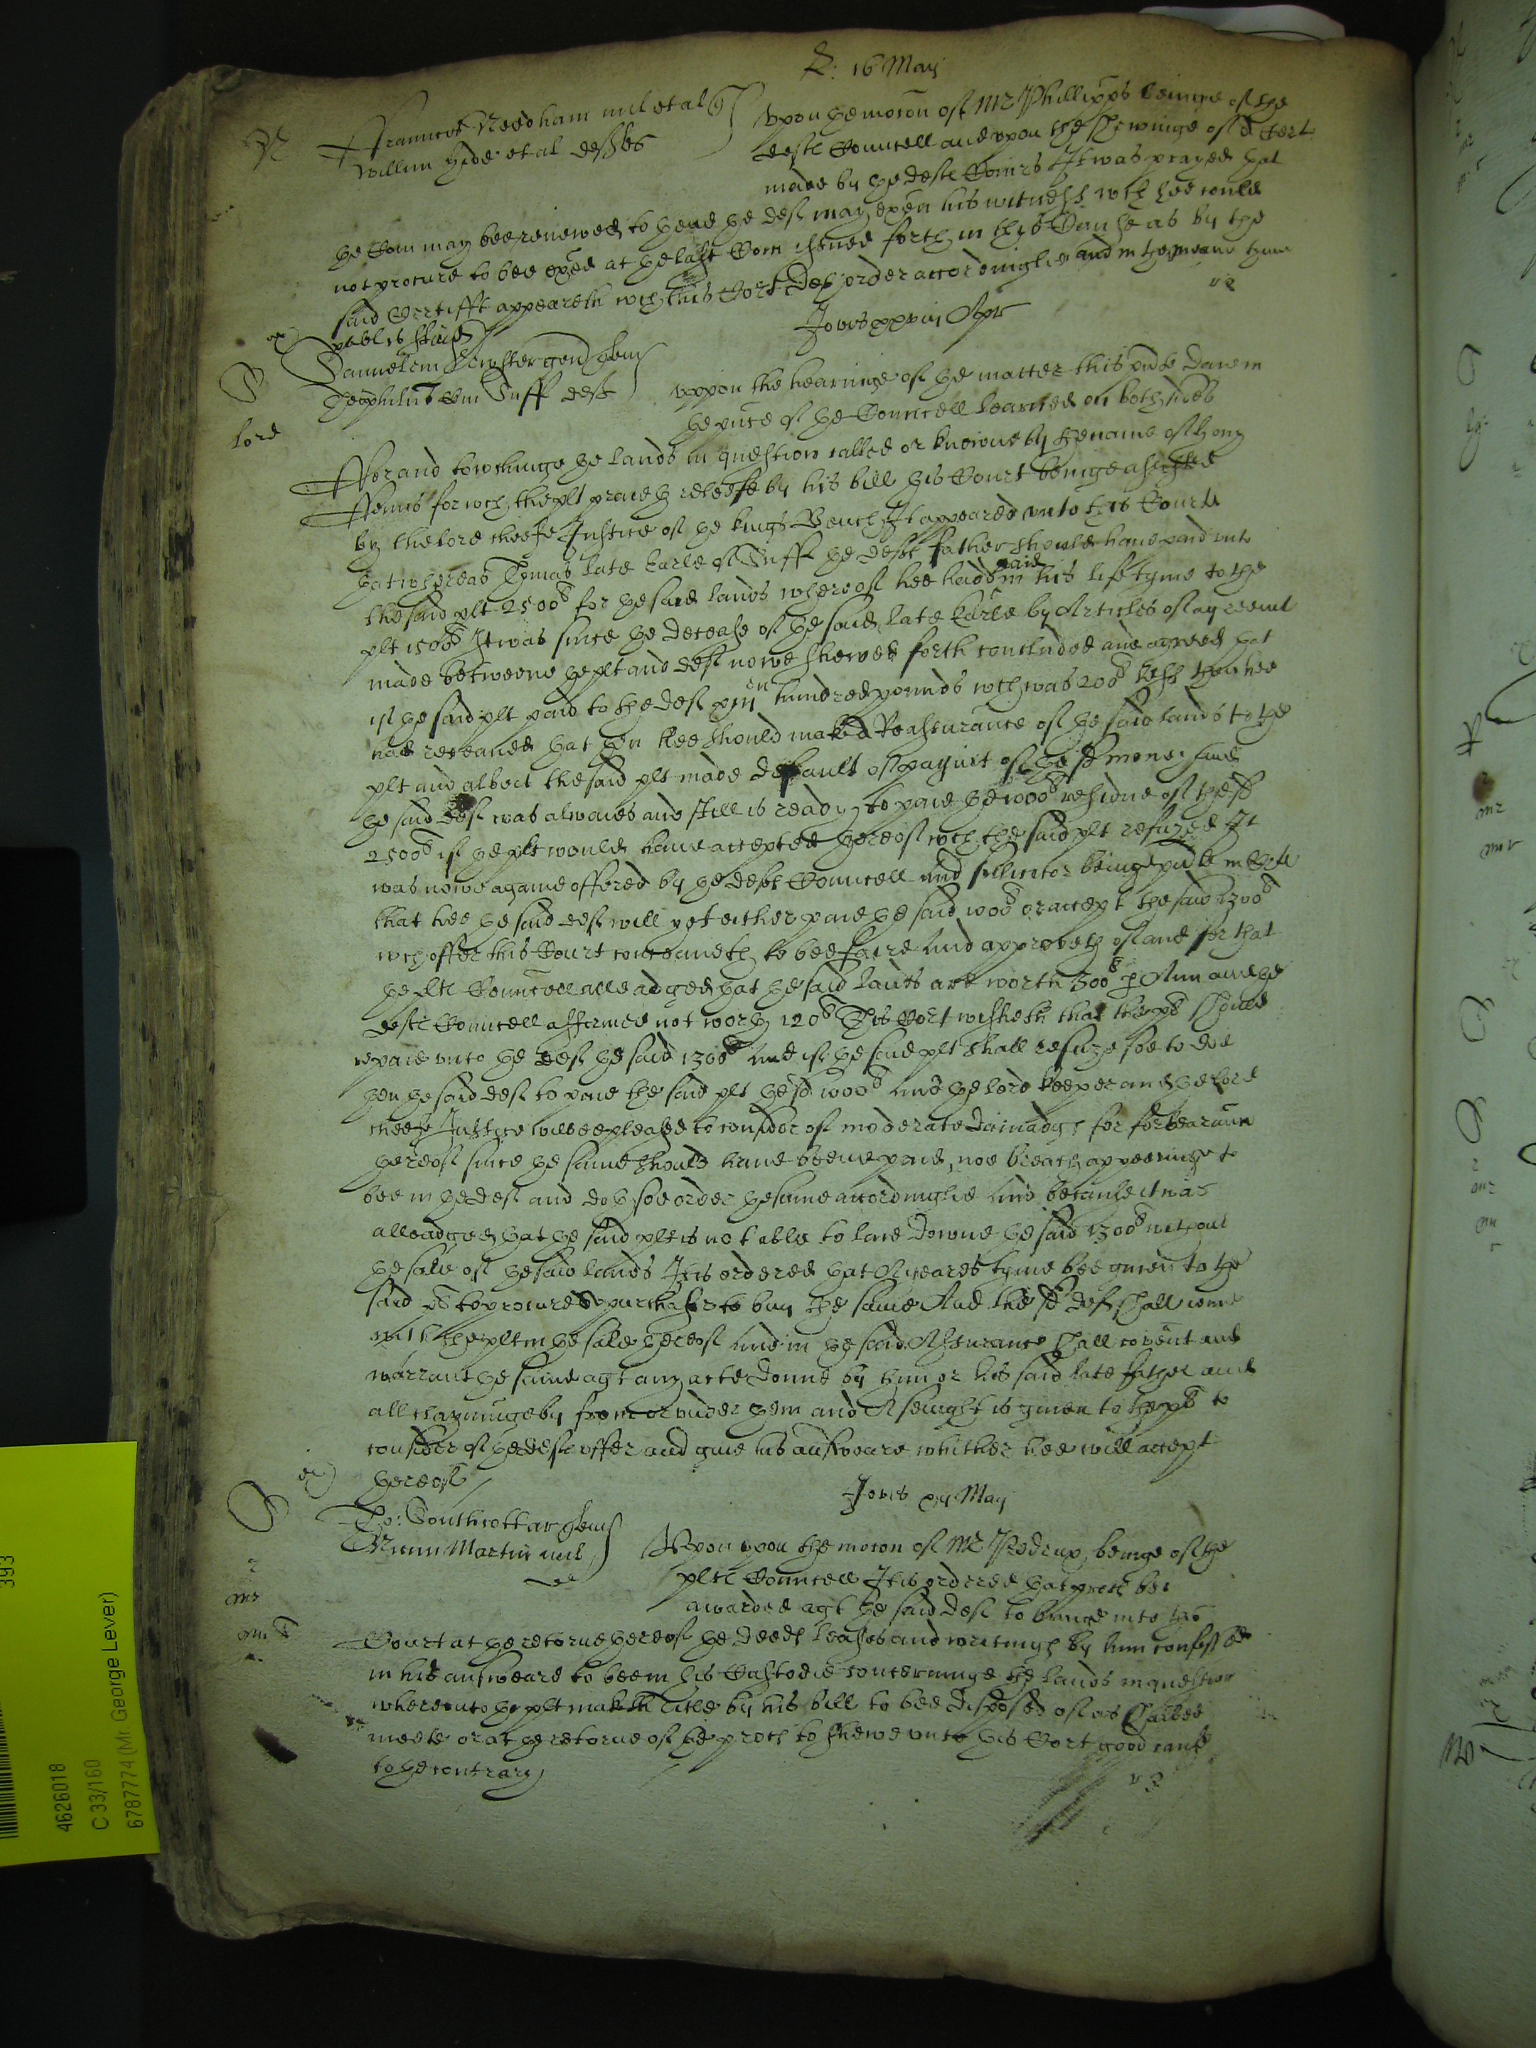 R: 16 May
Frannces Needham mil et al q
Willim Hide et al deftes
Upon the motion of Mr Phillipps beinge of the
deftes Councell and upon the shewinge of a Cert
made by the deftes Comrs It was prayed that
the Com may bee renewed to thend the deft may exen his witness wch hee could
not procure to bee exed at the last Com issued forth in this Cause as by the
said Certifft appeareth wch this Cort doth order accordinglie and in the meane tyme
publ is staied
Jovis xxviij Apr
Samuelem gen quer
Theophilus Com Suff deft
lord
Uppon the hearinge of the matter this pnte daie in
the pnce of the Councell learned on both sides
For and towchinge the lands in question called or knowne by the name of
for wch the plt praieth releefe by his bill this Court beinge assisted
by the lord cheefe Justice of the kings Bench It appeared unto this Courte
that whereas Thomas late Earle of Suff the defts father should have paid unto
the said plt 2500li for the said lands whereof hee hadd paid in his life tyme to the
plt 1500li It was since the decease of the said late Earle by Articles of agreemt
made betweene the plt and deft nowe shewed forth concluded and agreed that
if the said plt paid to the deft xiijen hundred pounds wch was 200li less then hee
had receaved that then hee should make a Reassurance of the said lands to the
plt and albeit the said plt made default of paymt of the sd money and
the said deft was alwaies and still is ready to paie the 1000li residue of the sd
2500li if the plt would have accepted thereof wch the said plt refuzed It
was nowe againe offered by the defts Councell and sollicitor beinge pnte in Cort
that hee the said deft will yet either paie the said 1000li or accept the said 1300li
wch offer this Court conceaveth to bee faire and approveth of and for that
the plts Councell alleadged that the said lands are worth 300li p Ann and the
defts Councell affirmed not worth 120li This Cort wisheth that the plt should
repaie unto the deft the said 1300li and if the said plt shall refuze soe to doe
then the said deft to paie the said plt the sd 1000li and the lord keeper and the lord
cheefe Justice wilbee pleased to consider of moderate damadges for forbearance
thereof since the same should have beene paid, noe breach appearinge to
bee in the deft and doth soe order the same accordinglie And because it was
alleadged that the said plt is not able to laie downe the said 1300li without
the sale of the said lands It is ordered that A yeares tyme bee given to the
said plt to procure a purchaser to buy the same And the sd deft shall ioyne
with the plt in the sale thereof and in the said Assurance shall covent and
warrant the same agt any acte donne by him or his said late father and
all clayminge by from or under them and A seinight is given to the plt to
consider of the defts offer and give his answeare whither hee will accept
thereof
Jovis May
Tho: Southcott ar quer
Martin mil
Upon the motion of Mr beinge of the
plts Councell It is ordered that proces bee
awarded agt the said deft to bringe into this
Court at the retorne thereof the deeds leases and writings by him confessed
in his answeare to bee in his Custodie concerninge the lands in question
whereunto the plt maketh title by his bill to bee disposed of as shalbee
meete or at the retorne of the proces to shewe unto this Cort good cause
to the contrary
393
4626018
C 33/160
6787774 (Mr. George Lever)